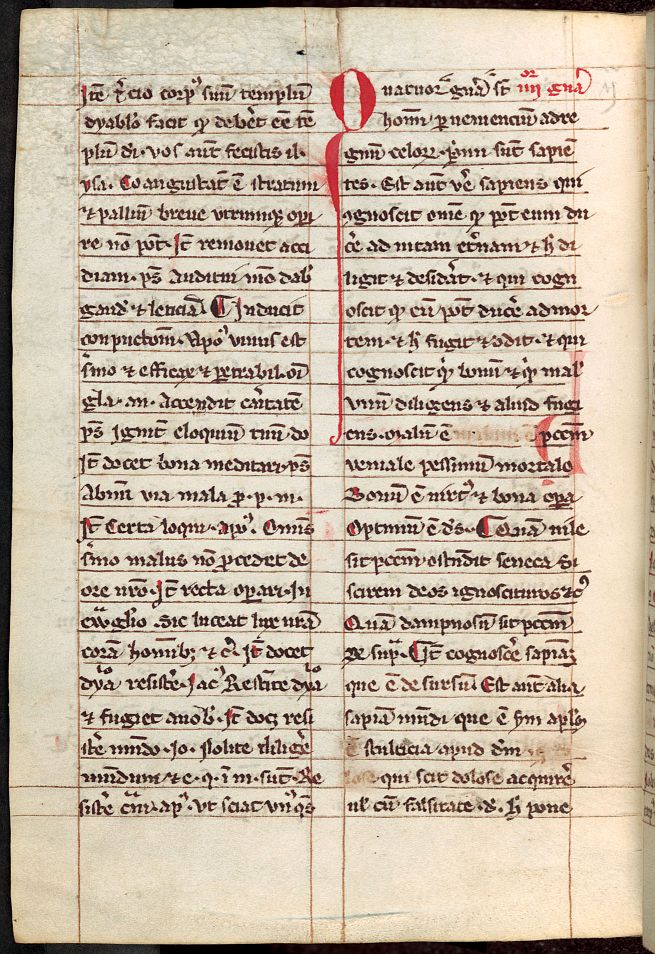 Itē t̾cio corpꝰ suū templū
dyaboli facit qđ deberet eē tē
plū di. vos aut fecistis il.
ꝯpa. Coangustatū ē stratum
⁊ palliū breue utrumqꝫ ope
rire nō pōt. Itē remouet acci
diam. ps̄ Auditui meo dabꝭ
gaudiū ⁊ leticiā. Inducit
conpuctionē. Apoꝰ viuus est
sermo ⁊ efficax ⁊ penetrabil. oī
gla. an. Accendit caritatē
ps̄ Ignitū eloquiū tuū do
Itē docet bona meditari. ps̄
Itē Certa loqui. apoꝰ. Omnis
sermo malus nō procedet de
ore uro. Itē recta operari. In
ewāglio. Sic luceat lux urā
corā hominibꝫ ⁊ c̄. Itē docet
dyabolo resistere. Iacꝰ. Resistite dyabolo
⁊ fugiet a uobꝭ. Itē docꝫ resi
stere mūdo. Io. Nolite diligere
mundum ⁊ e. q. ī m. sūt. Re
sistere carni. apꝰ. Vt sciat vnꝰqisqꝫ
Quatuor genera sūt iiii gena
hominū peruenienciū ad re
gnum celorū. Primi sunt sapiē
tes. Est aut vere sapiens qui
ꝯgnoscit omē qđ pōt eum du
cere ad uitam eternam ⁊ h̄ di
ligit ⁊ desiderat. ⁊ qui cogn
oscit qđ eū pōt ducere ad mor
tem. ⁊ h̄ fugit ⁊ odit. ⁊ qui
cognoscit qđ bonū ⁊ qđ malū
vnū diligens ⁊ aliud fugi
ens. Malū ē pccm̄
veniale pessimum mortale
Bonū ē uirtꝰ ⁊ bona opera
Optimū ē ds̄. Quā uile
sit pccm̄ ostendit seneca Si
scirem deos ignoscituros ⁊cꝭ
Quā dampnosū sit pccm̄
Rꝫ supra. Itē cognoscere sapiam
que ē desursū. Est aut alia
sapiā mūdi que ē scm̄ aplm̄
ē stulticia apud dm̄
qui scit dolose acquirere
ul cū falsitate. ds̄. h̄ pone